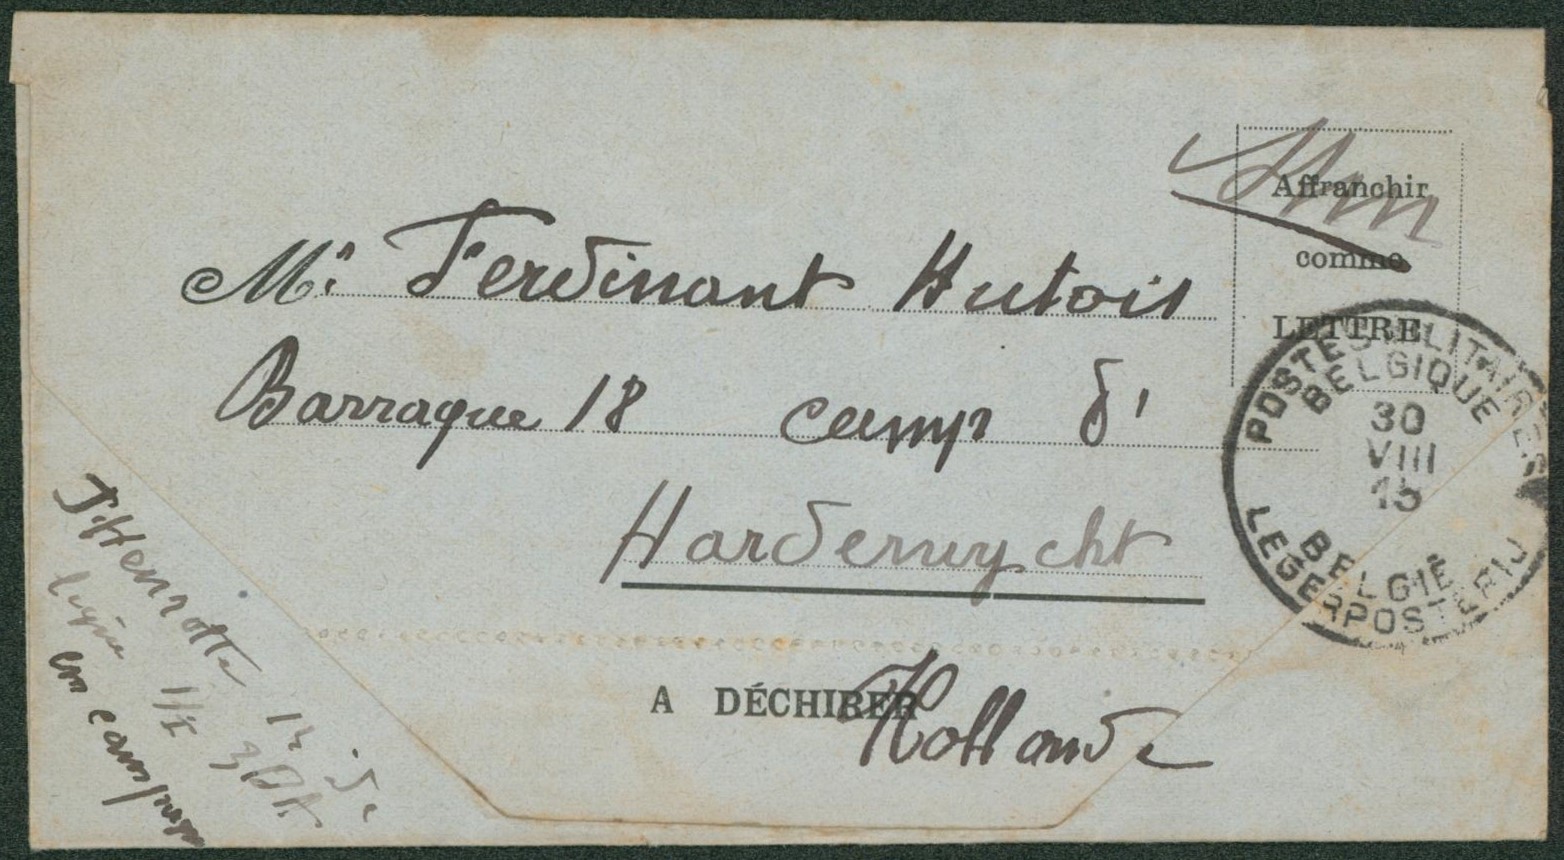 Affranchir
comme
LETTRE
Mr Ferdinant Hutois
Barraque 18 camp d'
Harderwycht
Hollande
A DÉCHIRER
POSTES MILITAIRES
BELGIQUE
30
VIII
15
BELGIË
LEGERPOSTERIJ
J. Henrotte 12 de
ligne 1/I 3 DA
en campagne